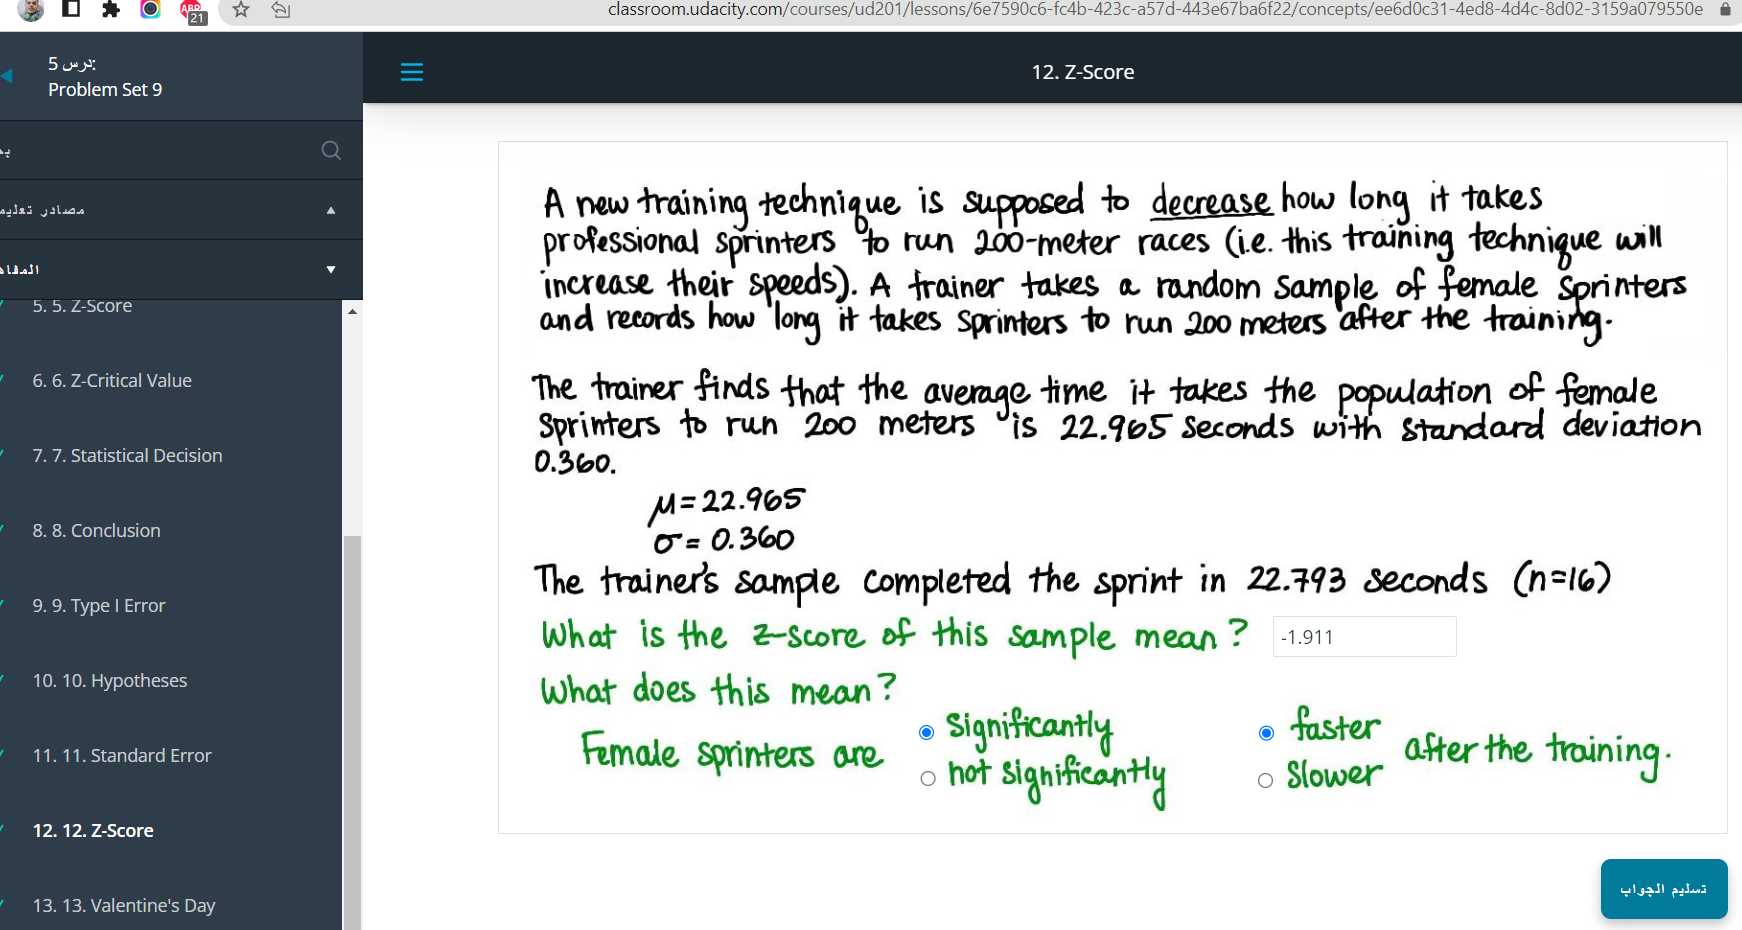 ABP
21
classroom.udacity.com/courses/ud201/lessons/6e7590c6-fc4b-423c-a57d-443e67ba6f22/concepts/ee6d0c31-4ed8-4d4c-8d02-3159a079550e
درس 5:
Problem Set 9
12. Z-Score
مصادر تعليم
المفاه
5. 5. Z-Score
6. 6. Z-Critical Value
7. 7. Statistical Decision
8. 8. Conclusion
9. 9. Type I Error
10. 10. Hypotheses
11. 11. Standard Error
12. 12. Z-Score
13. 13. Valentine's Day
A new training technique is supposed to decrease how long it takes
professional sprinters to run 200-meter races (i.e. this training technique will
increase their speeds). A trainer takes a random sample of female sprinters
and records how long it takes sprinters to run 200 meters after the training.
The trainer finds that the average time it takes the population of female
sprinters to run 200 meters is 22.965 seconds with standard deviation
0.360.
μ = 22.965
σ = 0.360
The trainer's sample completed the sprint in 22.793 seconds (n=16)
What is the z-score of this sample mean? -1.911
What does this mean?
Female sprinters are significantly faster after the training.
not significantly slower
تسليم الجواب